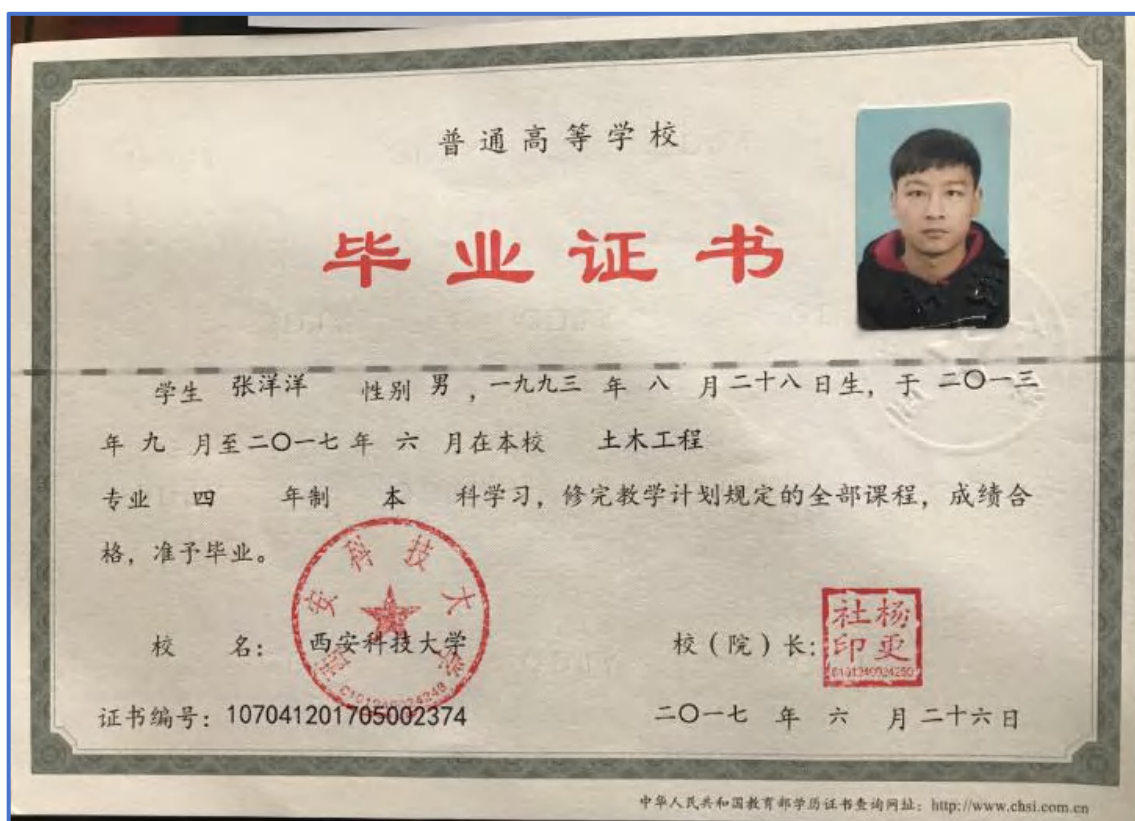 普通高等学校
毕业证书
学生 张洋洋 性别 男 ，一九九三 年 八 月 二十八 日生，于 二〇一三
年 九 月至 二〇一七 年 六 月在本校 土木工程
专业 四 年制 本 科学习，修完教学计划规定的全部课程，成绩合
格，准予毕业。
西安科技大学
校 名： 西安科技大学
校（院）长：
杨更社印
证书编号：107041201705002374
二〇一七 年 六 月 二十六 日
中华人民共和国教育部学历证书查询网址：http://www.chsi.com.cn